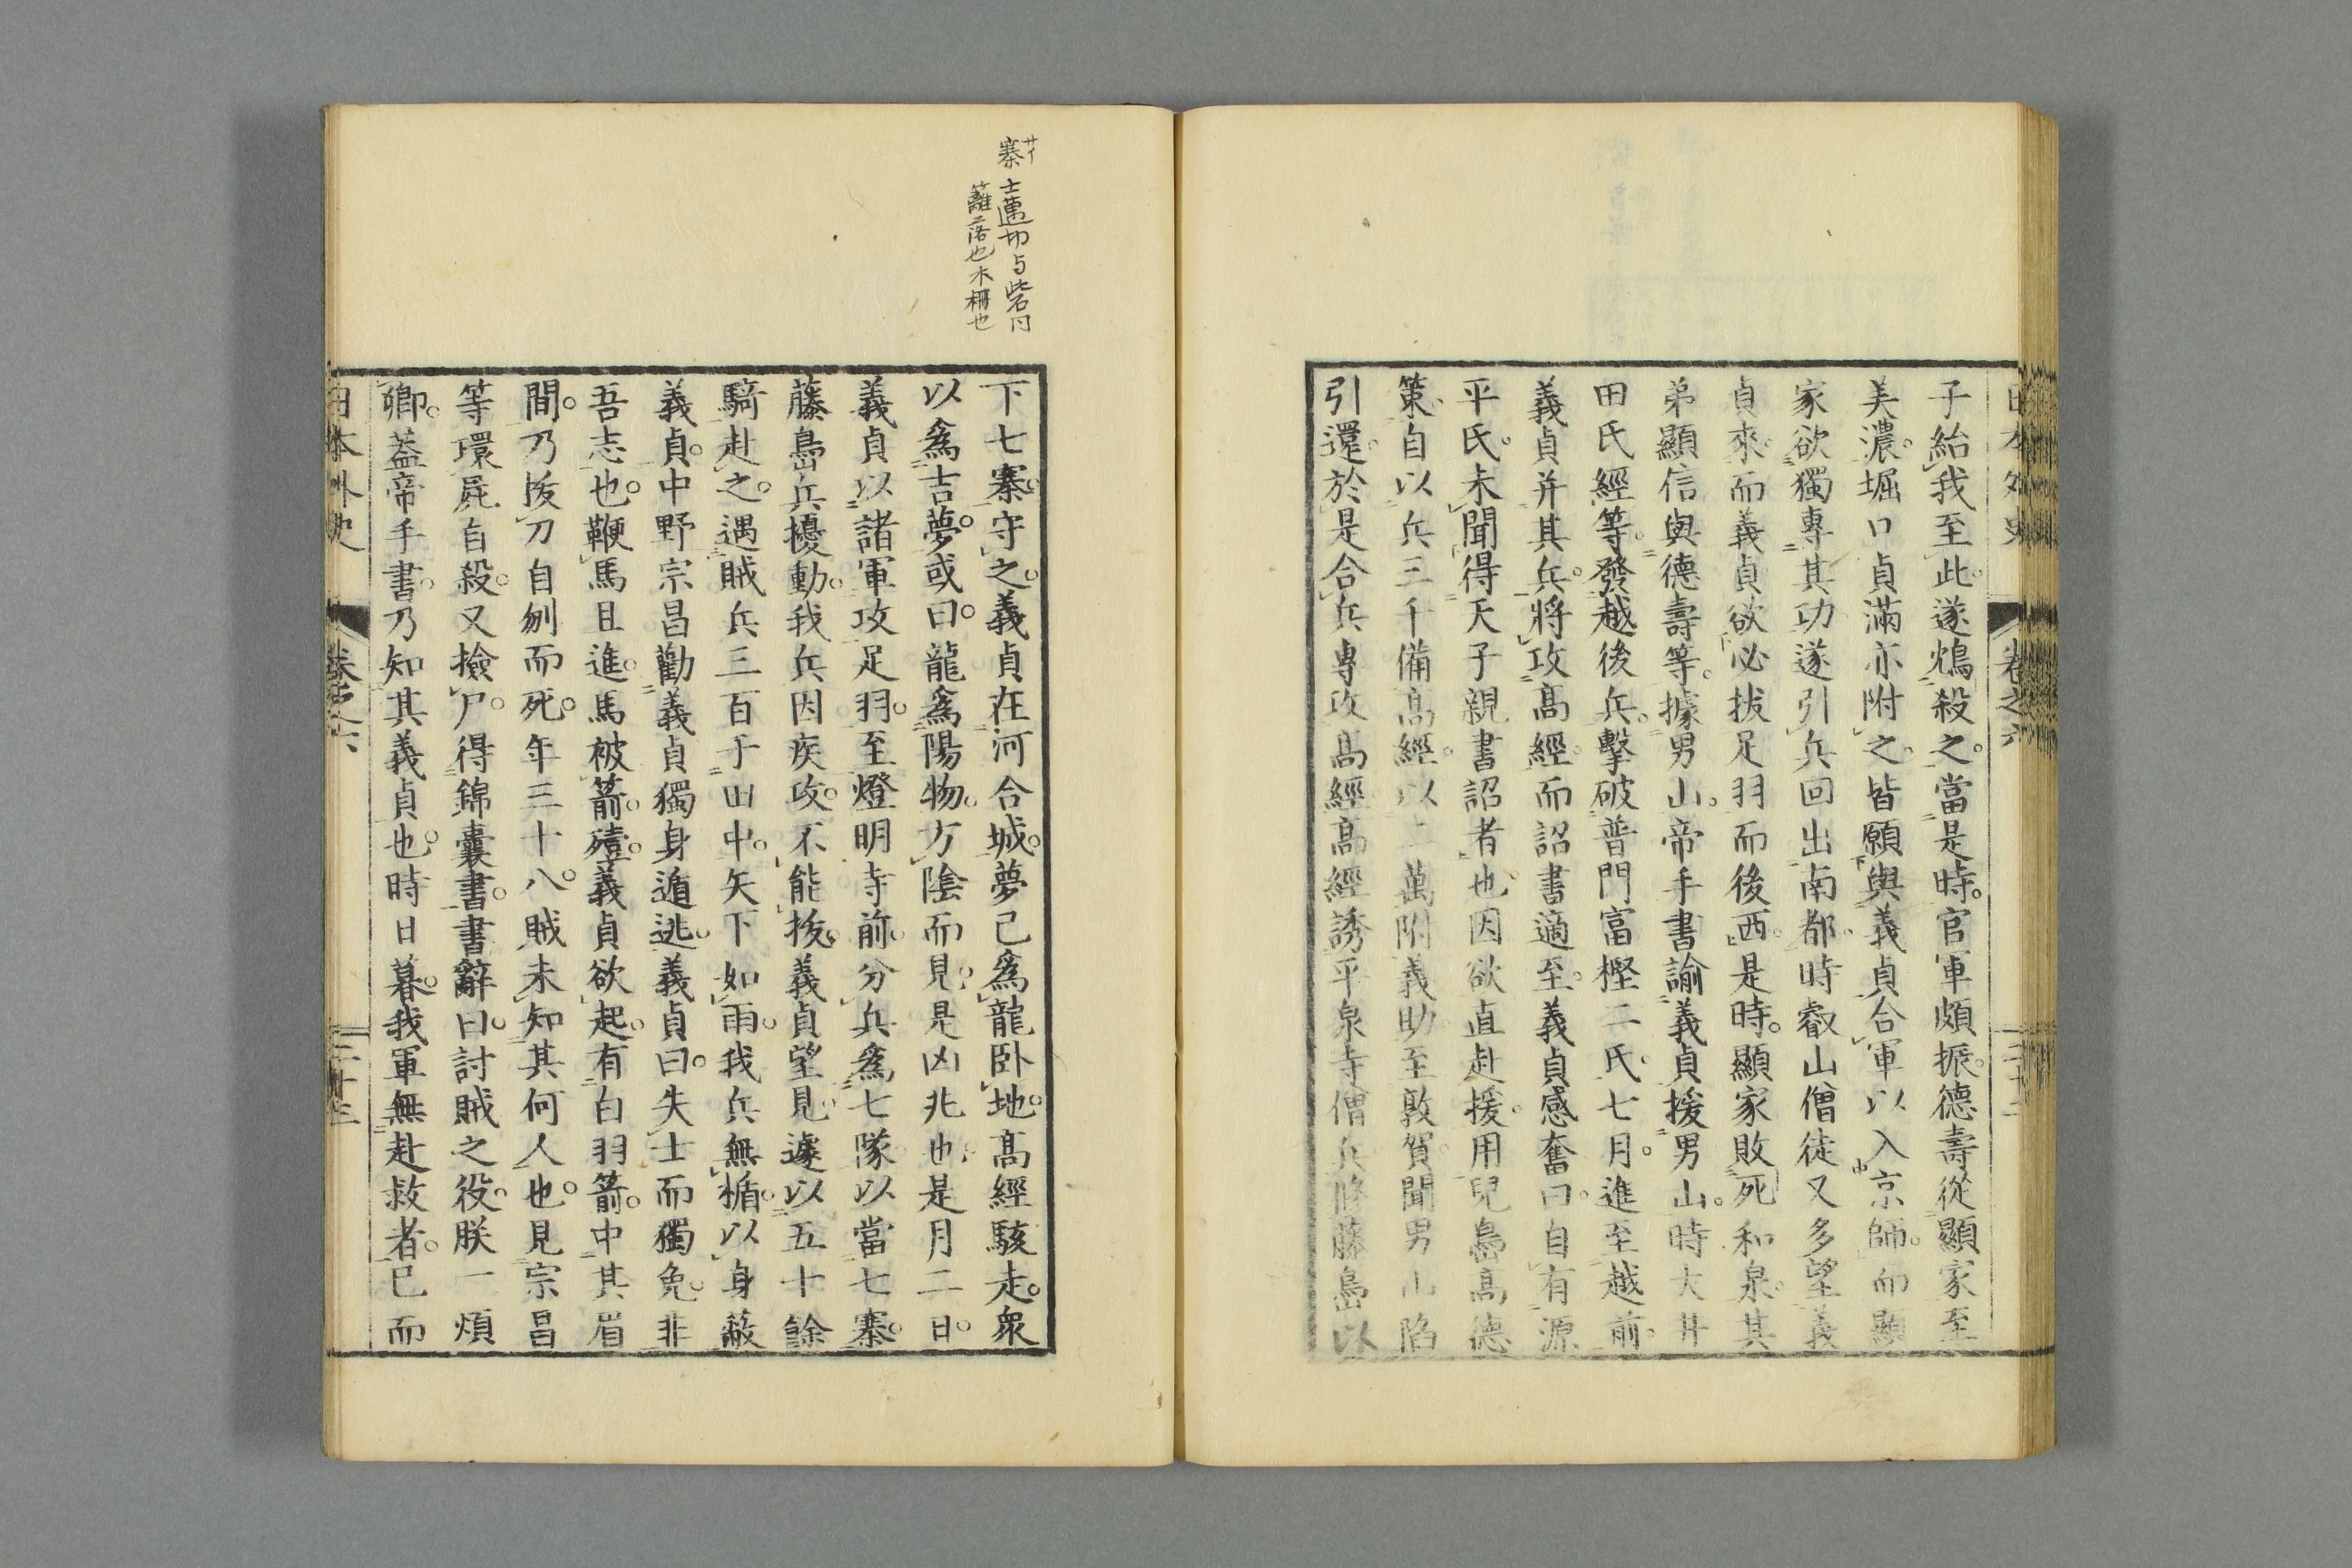 日本外史 卷之六
子紿我至此。遂鴆殺之。當是時。官軍頗振。德壽從顯家至
美濃。堀口貞滿亦附之。皆願與義貞合軍以入京師。而顯
家欲獨專其功遂引兵回出南都。時叡山僧徒又多望義
貞來。而義貞欲必拔足羽而後西。是時。顯家敗死和泉。其
弟顯信與德壽等。據男山。帝手書諭義貞援男山。時大井
田氏經等。發越後兵。擊破普門富樫二氏。七月。進至越前。
義貞并其兵。將攻高經。而詔書適至。義貞感奮曰。自有源
平氏。未聞得天子親書詔者也。因欲直赴援。用兒島高德
策。自以兵三千備高經。以二萬附義助至敦賀。聞男山陷
引還。於是合兵專攻高經高經誘平泉寺僧兵脩藤島以
寨 サイ 士邁切与砦同
籬落也木柵也
下七寨。守之。義貞在河合城。夢己爲龍臥地。高經駭走。衆
以爲吉夢。或曰。龍爲陽物。方陰而見。是凶兆也。是月二日。
義貞以諸軍攻足羽。至燈明寺前。分兵爲七隊以當七寨。
藤島兵擾動。我兵因疾攻。不能拔。義貞望見遽以五十餘
騎赴之。遇賊兵三百于田中。矢下如雨。我兵無楯。以身蔽
義貞。中野宗昌勸義貞獨身遁逃。義貞曰。失士而獨免。非
吾志也。鞭馬且進。馬被箭。殪。義貞欲起。有白羽箭。中其眉
間。乃拔刀自刎而死。年三十八。賊未知其何人也。見宗昌
等環屍自殺。又撿尸。得錦囊書。書辭曰。討賊之役。朕一煩
卿。蓋帝手書。乃知其義貞也。時日暮。我軍無赴救者。已而
日本外史 卷之六 二十三